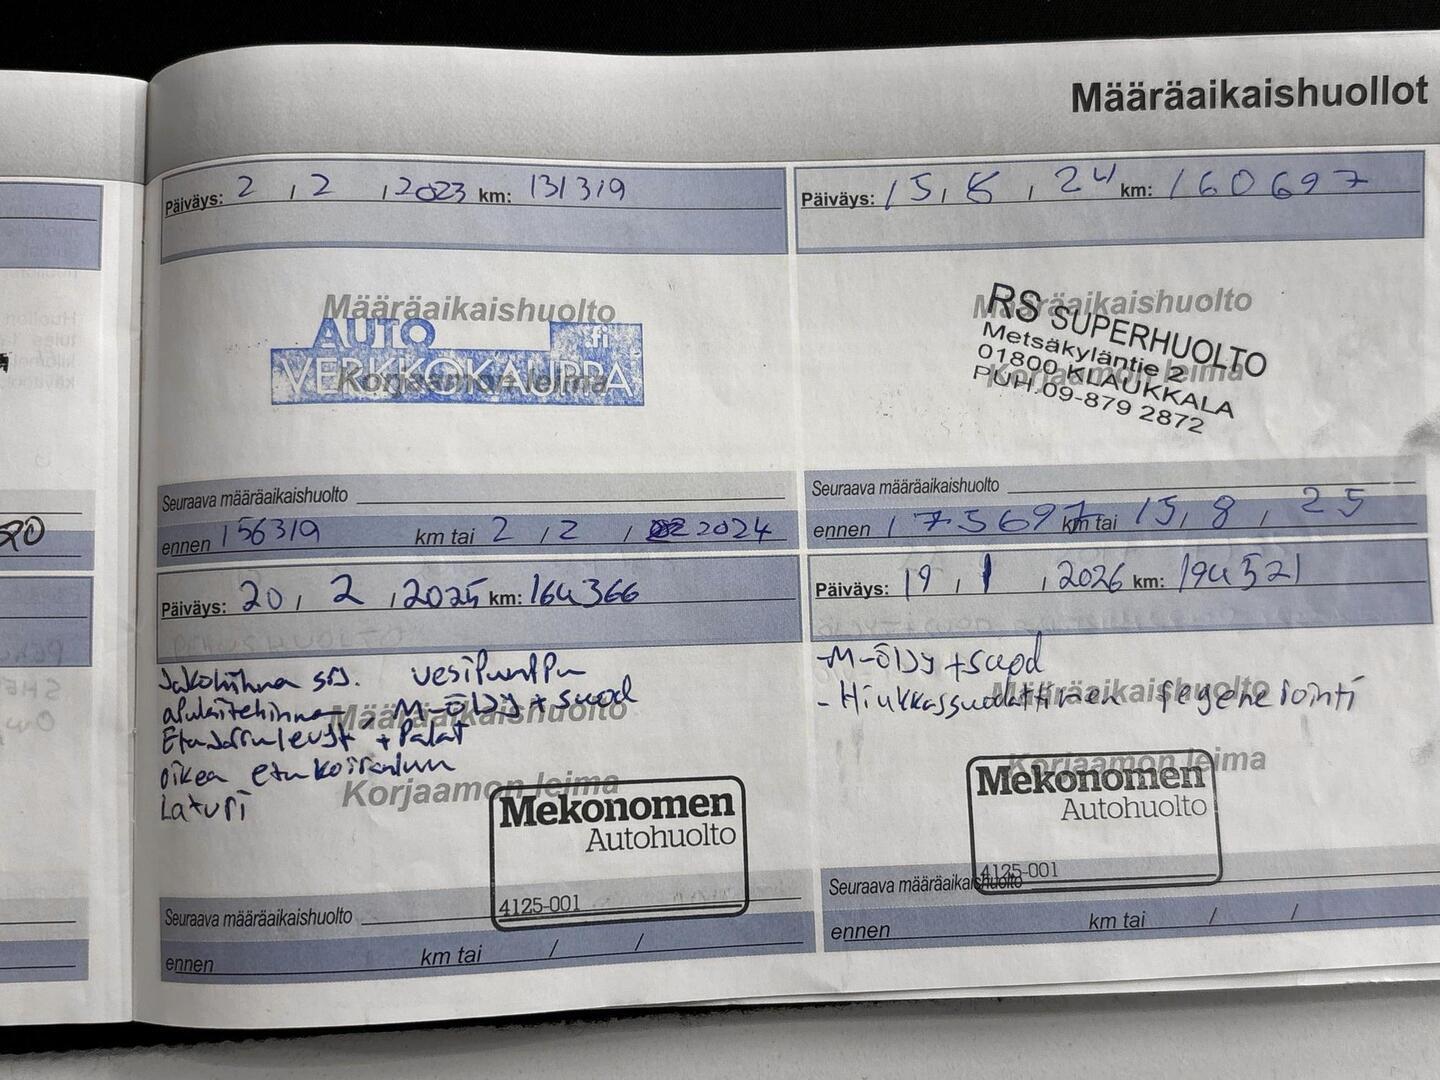 Määräaikaishuollot
Päiväys: 2 / 2 / 2023 km: 131319
Määräaikaishuolto
AUTO .fi
VERKKOKAUPPA
Korjaamon leima
Seuraava määräaikaishuolto
ennen 156319 km tai 2 / 2 / 2024
Päiväys: 15, , 24 km: 160697
Määräaikaishuolto
RS SUPERHUOLTO
Metsäkyläntie 2
01800 KLAUKKALA
PUH.09-879 2872
Korjaamon leima
Seuraava määräaikaishuolto
ennen 175697 km tai 15, 8, 25
Päiväys: 20, 2, 2025 km: 164366
Jakohihna srj. vesipumppu
apulaitehihna, M-öljy + suod
Etujarrulevyt + Palat
oikea etukoiranluu
Laturi
Määräaikaishuolto
Korjaamon leima
Mekonomen
Autohuolto
4125-001
Seuraava määräaikaishuolto
ennen km tai / /
Päiväys: 19, 1, 2026 km: 194521
-M-öljy + suod
- Hiukkassuodattimen regenerointi
Määräaikaishuolto
Korjaamon leima
Mekonomen
Autohuolto
4125-001
Seuraava määräaikaishuolto
ennen km tai / /